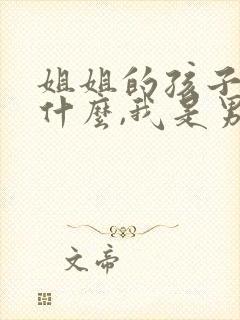 姐姐的孩子
什麼,我是男
文帝